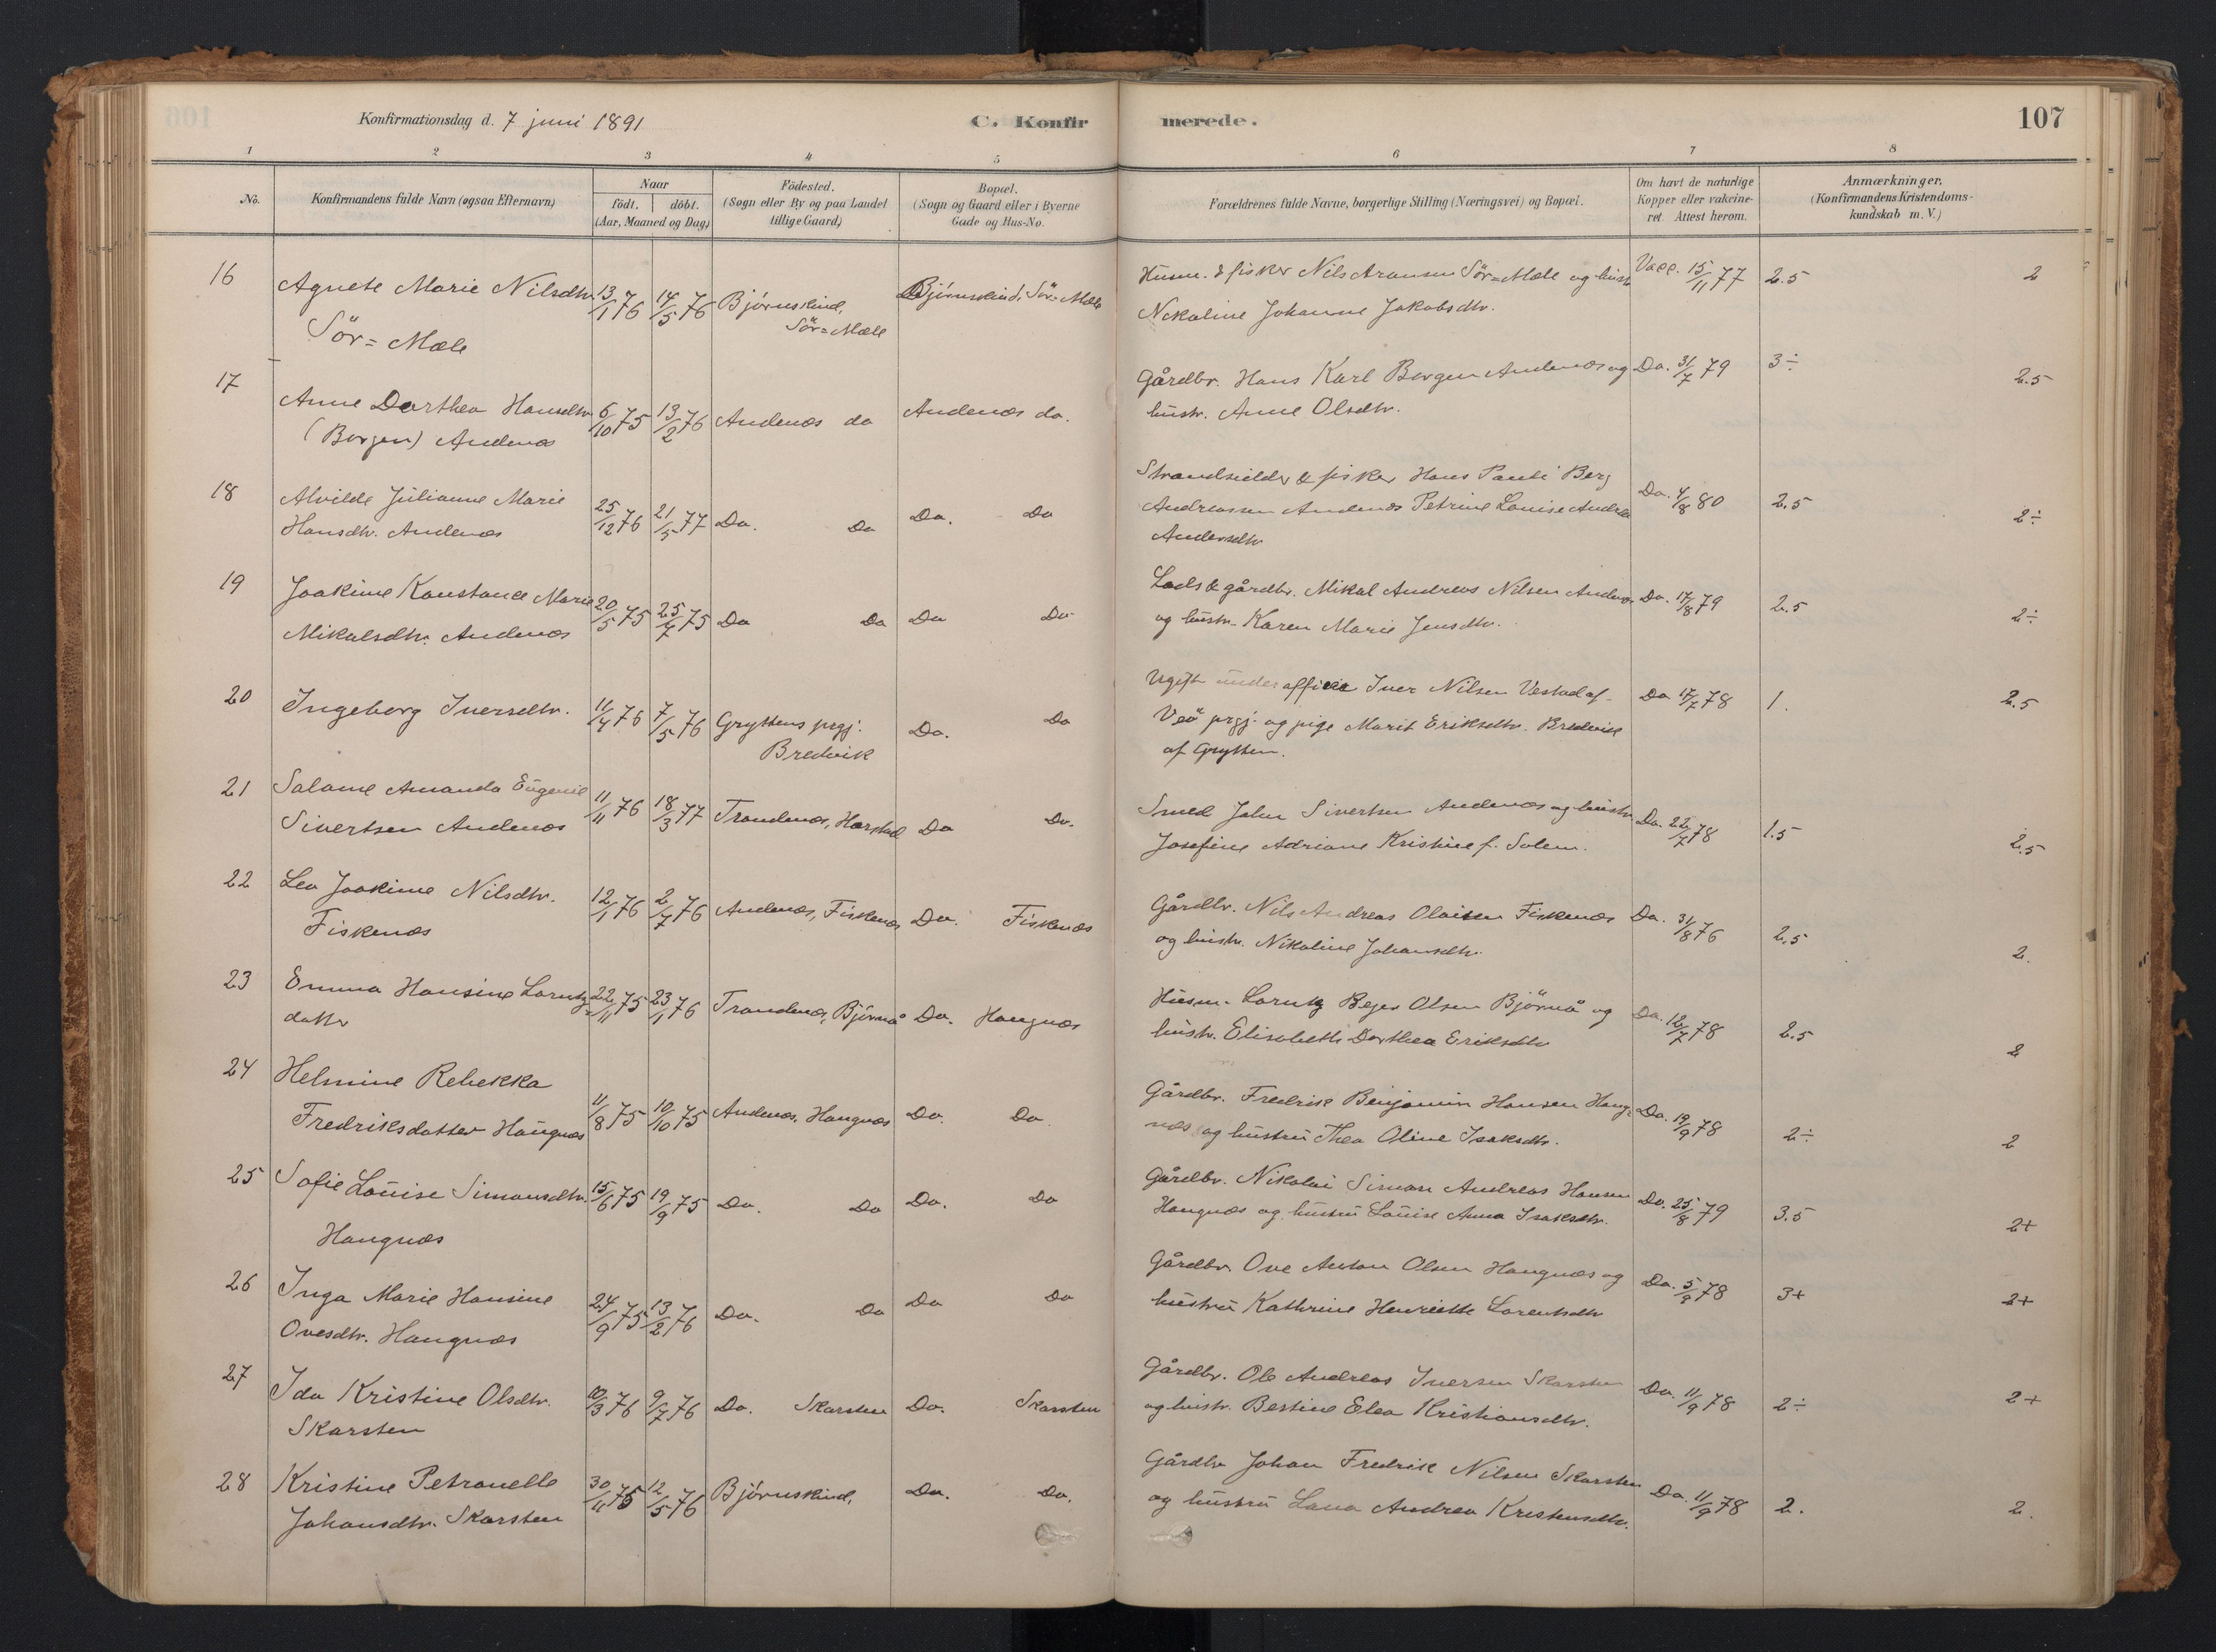 Konfirmationsdag d. 7 juni 1891
C. Konfirmerede.
107
1 2 3 4 5 6 7 8
No.
Konfirmandens fulde Navn (ogsaa Efternavn)
Naar
födt. döbt.
(Aar, Maaned og Dag)
Födested.
(Sogn eller By og paa Landet
tillige Gaard)
Bopæl.
(Sogn og Gaard eller i Byerne
Gade og Hus-No.
Forældrenes fulde Navne, borgerlige Stilling (Næringsvei) og Bopæl.
Om havt de naturlige
Kopper eller vakcine-
ret. Attest herom.
Anmærkninger.
(Konfirmandens Kristendoms-
kundskab m. V.)
16 Agnete Marie Nilsdtr. 13/1 76 14/5 76 Björnskind, Björnskind, Sör=Mæle Husm. & fisker Nils Aronsen Sör=Mæle og hustr Vacc. 15/11 77 2.5 2
Sör=Mæle Sör=Mæle Nekoline Johanne Jakobsdtr.
17 Anne Dorthea Hansdtr. 6/10 75 13/2 76 Andenæs do Andenæs do. Gårdbr. Hans Karl Borgen Andenæs og Do. 31/7 79 3÷ 2.5
(Borgen) Andenæs hustr. Anne Olsdtr.
18 Alvilde Julianne Marie 25/12 76 21/5 77 Do. Do Do. Do Strandsidder & fisker Hans Pauli Berg Do. 4/8 80 2.5 2÷
Hansdtr. Andenæs Andreassen Andenæs Petrine Louise Andrea
Andersdtr
19 Joakime Konstance Marie 20/5 75 25/7 75 Do Do Do Do Lods & gårdbr. Mikal Andreas Nilsen Andenæs Do. 17/8 79 2.5 2÷
Mikalsdtr. Andenæs og hustr. Karen Marie Jensdtr.
20 Ingeborg Iversdtr. 11/4 76 7/5 76 Gryttens prgj. Do. Do Ugift underofficer Iver Nilsen Vestad af Do 17/7 78 1. 2.5
Bredvik Veö prgj. og pige Marit Eriksdtr. Bredvik
af Grytten.
21 Salome Amanda Eugenie 11/11 76 18/3 77 Trondenæs, Harstad Do Do. Smed John Sivertsen Andenæs og hustr. Do. 22/7 78 1.5 2.5
Sivertsen Andenæs Josefine Adriane Kristine f. Solem.
22 Lea Joakime Nilsdtr. 12/1 76 2/7 76 Andenæs, Fiskenæs Do. Fiskenæs Gårdbr. Nils Andreas Olaisen Fiskenæs Do. 31/8 76 2.5 2.
Fiskenæs og hustr. Nikoline Johansdtr.
23 Emma Hansine Lorntz= 22/11 75 23/1 76 Trondenæs, Björnå Do. Haugnæs Husm. Lorntz Bejer Olsen Björnå og Do. 12/7 78 2.5 2
datter hustr. Elisabeth Dorthea Eriksdtr
24 Helmine Rebekka 11/8 75 10/10 75 Andenæs, Haugnæs Do. Do. Gårdbr. Fredrik Benjamin Hansen Haug- Do. 19/9 78 2÷ 2
Fredriksdatter Haugnæs næs og hustru Thea Oline Isaksdtr.
25 Sofie Louise Simonsdtr. 15/6 75 19/9 75 Do. Do Do. Do Gårdbr. Nikolai Simon Andreas Hansen Do. 25/8 79 3.5 2+
Haugnæs Haugnæs og hustru Louise Anna Isaksdtr.
26 Inga Marie Hansine 24/9 75 13/2 76 Do. Do Do Do Gårdbr. Ove Anton Olsen Haugnæs og Do. 5/9 78 3+ 2+
Ovesdtr. Haugnæs hustru Kathrine Henriette Lorentsdtr
27 Ida Kristine Olsdtr. 10/3 76 9/7 76 Do. Skarsten Do. Skarsten Gårdbr. Ole Andreas Iversen Skarsten Do. 11/9 78 2÷ 2+
Skarsten og hustr. Bertine Elea Kristiansdtr.
28 Kristine Petronelle 30/11 75 12/5 76 Björnskind, Do. Do. Gårdbr Johan Fredrik Nilsen Skarsten Do. 11/9 78 2. 2.
Johansdtr. Skarsten og hustru Lava Andrea Kristensdtr.